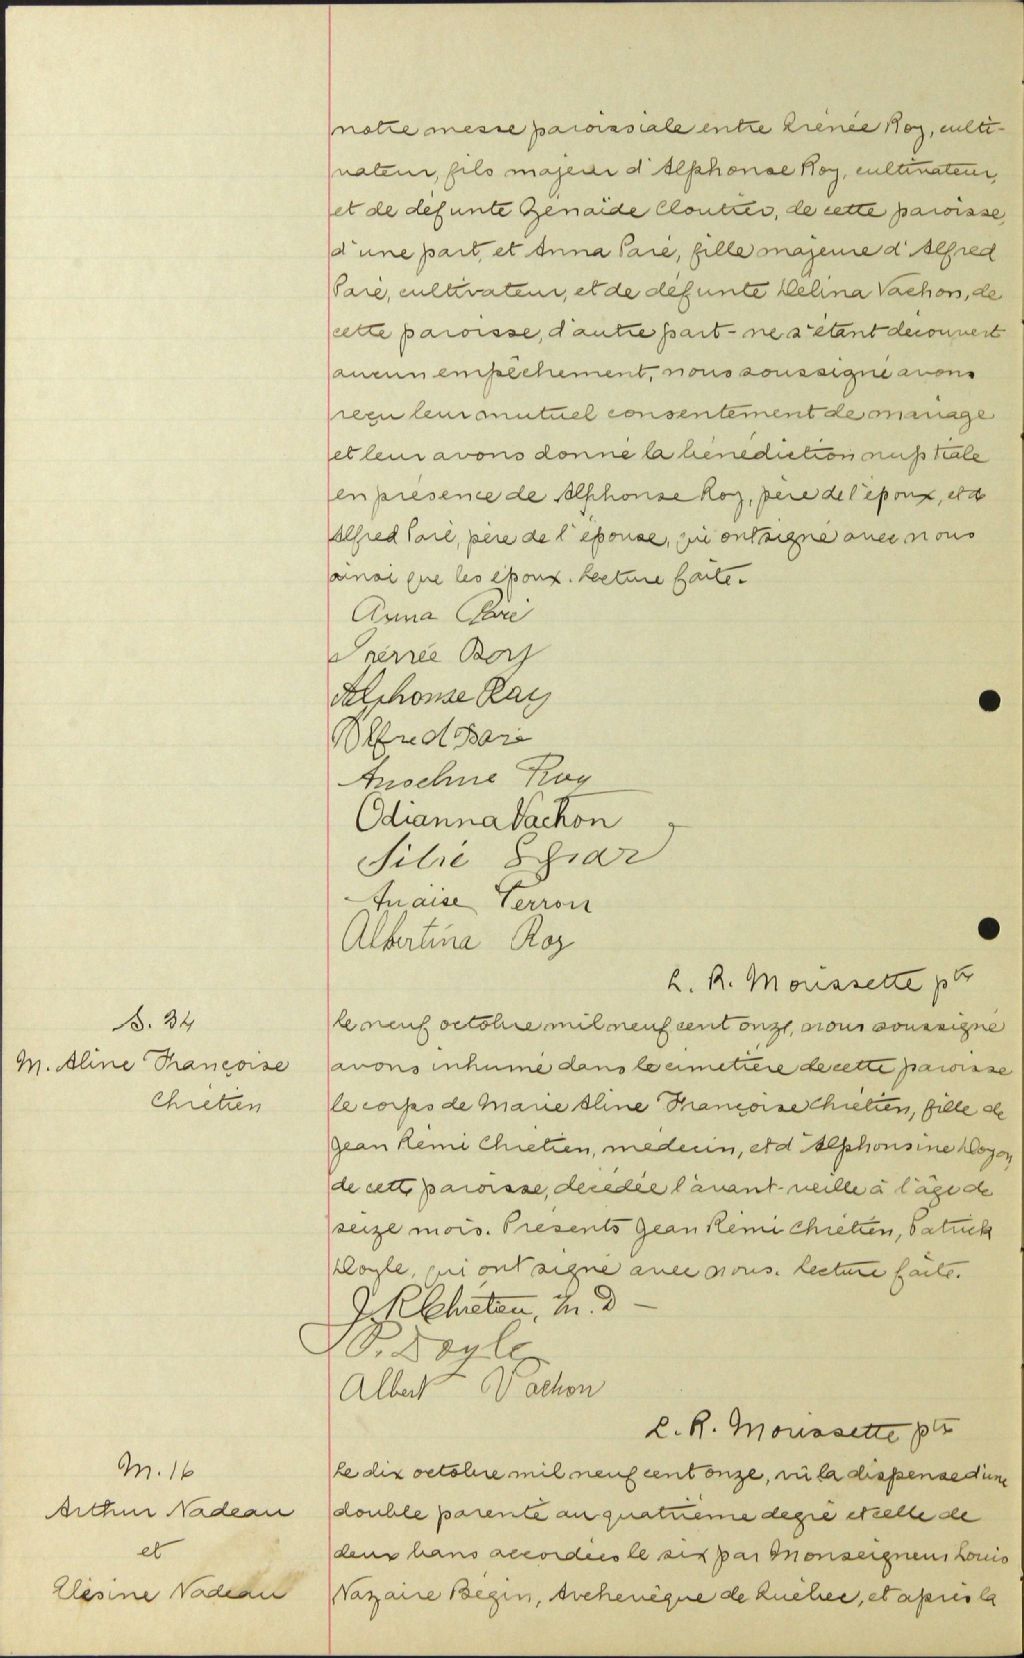 notre messe paroissiale entre Irénée Roy, culti-
vateur, fils majeur d'Alphonse Roy, cultivateur,
et de défunte Zénaïde Cloutier, de cette paroisse,
d'une part, et Anna Paré, fille majeure d'Alfred
Paré, cultivateur, et de défunte Délina Vachon, de
cette paroisse, d'autre part - ne s'étant découvert
aucun empêchement, nous soussigné avons
reçu leur mutuel consentement de mariage
et leur avons donné la bénédiction nuptiale
en présence de Alphonse Roy, père de l'époux, et de
Alfred Paré, père de l'épouse, qui ont signé avec nous
ainsi que les époux. Lecture faite.
Anna Paré
Irénée Roy
Alphonse Roy
Alfred Paré
Anselme Roy
Odianna Vachon
Anaïse Perron
Albertina Roy
L. R. Morissette ptre
S. 34
M. Aline Françoise
Chrétien
le neuf octobre mil neuf cent onze, nous soussigné
avons inhumé dans le cimetière de cette paroisse
le corps de Marie Aline Françoise Chrétien, fille de
Jean Rémi Chrétien, médecin, et d'Alphonsine Doyon,
de cette paroisse, décédée l'avant-veille à l'âge de
seize mois. Présents Jean Rémi Chrétien, Patrick
Doyle, qui ont signé avec nous. Lecture faite.
J. R. Chrétien, M. D -
P. Doyle
Albert Vachon
L. R. Morissette ptre
M. 16
Arthur Nadeau
et
Elésine Nadeau
Le dix octobre mil neuf cent onze, vû la dispense d'une
double parenté au quatrième degré et celle de
deux bans accordées le six par Monseigneur Louis
Nazaire Bégin, Archevêque de Québec, et après la